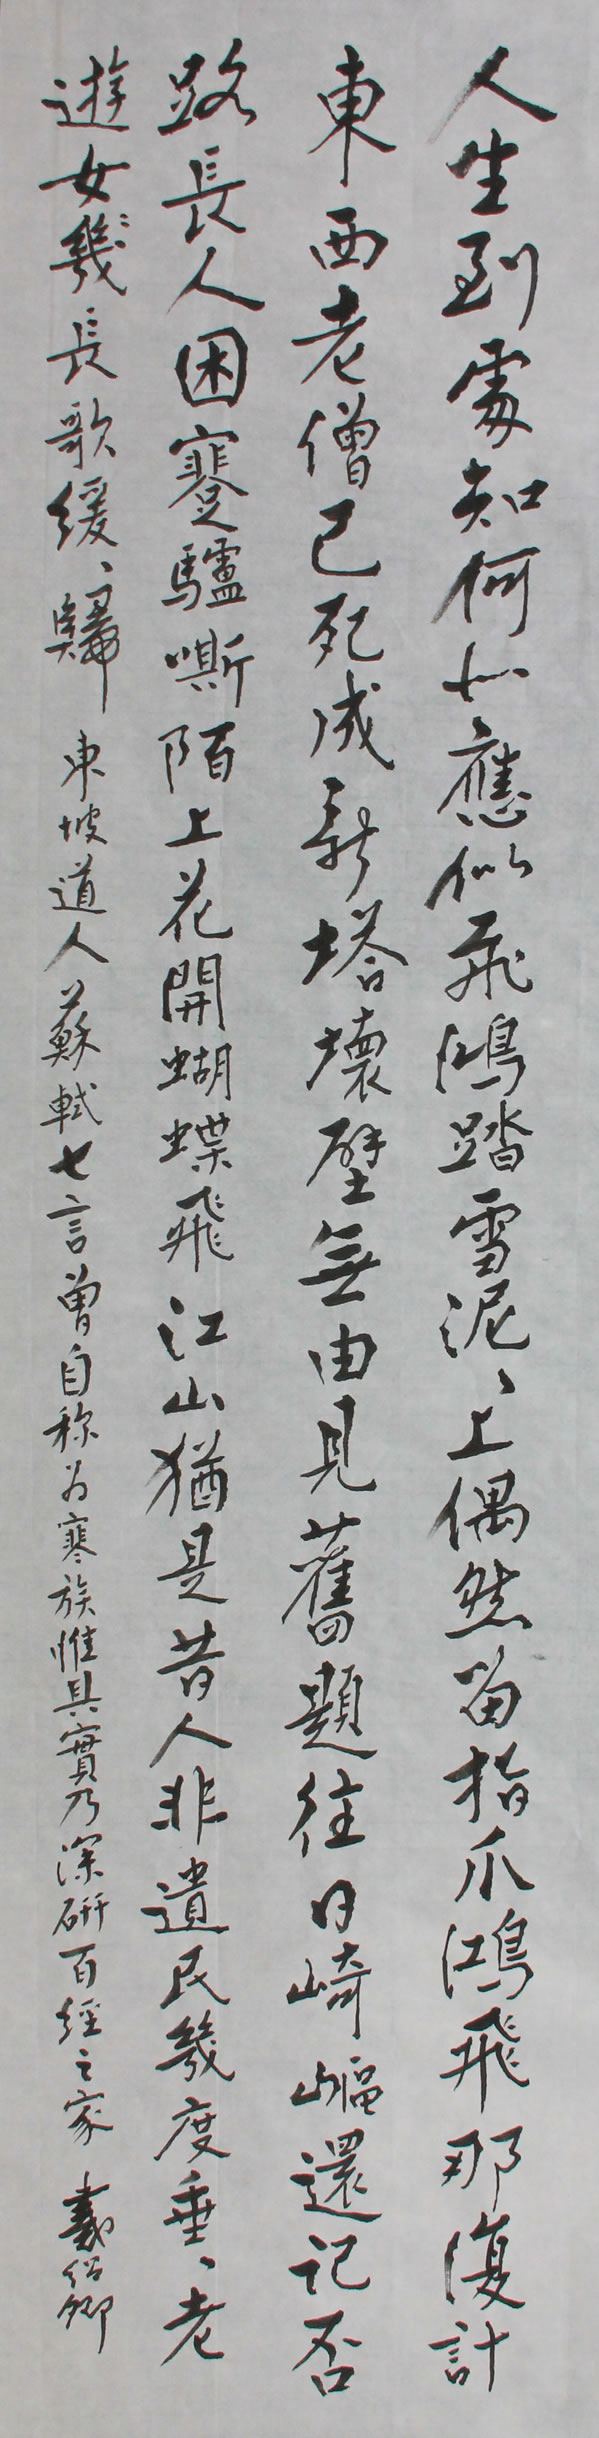 人生到處知何似應似飛鴻踏雪泥、上偶然留指爪鴻飛那復計
東西老僧已死成新塔壞壁無由見舊題往日崎嶇還記否
路長人困蹇驢嘶陌上花開蝴蝶飛江山猶是昔人非遺民幾度垂、老
遊女幾長歌緩、歸 東坡道人蘇軾七言曾自称為寒族惟具實乃深研百經之家 戴紹卿